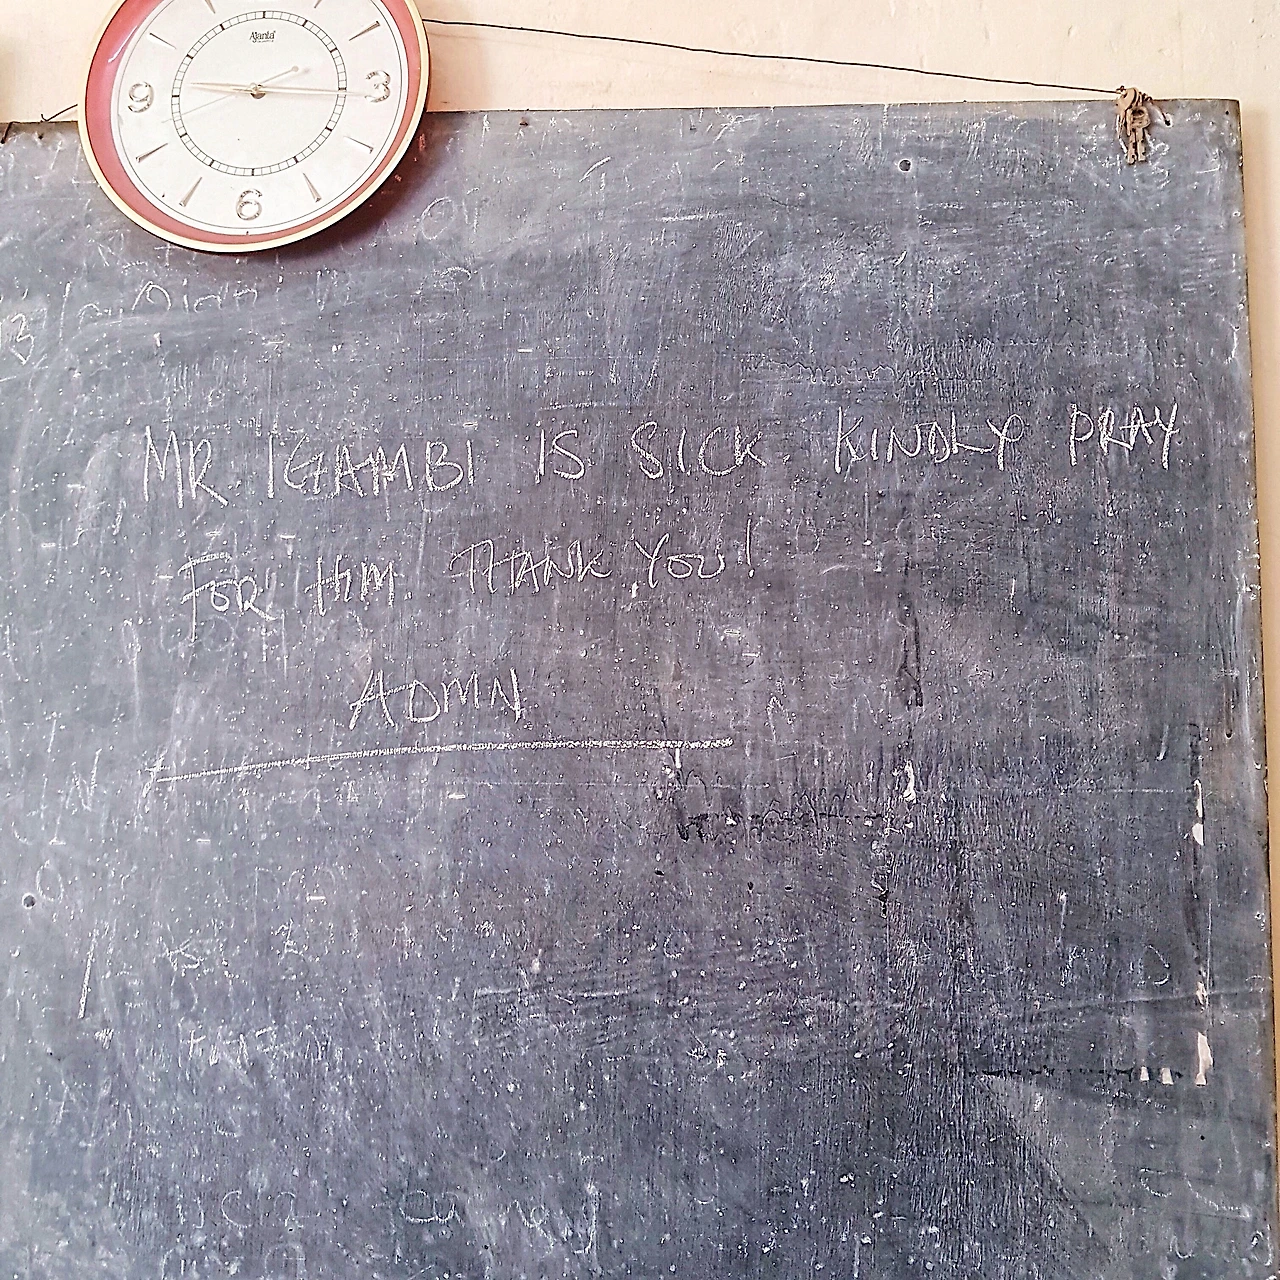 Ajanta
9 3
6
MR. IGAMBI IS SICK. KINDLY PRAY
FOR HIM. THANK YOU!
ADMN